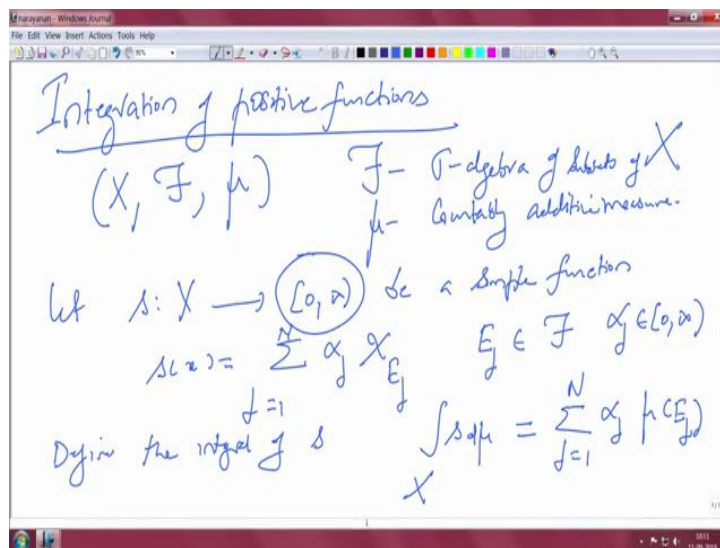 narayanan - Windows Journal
File Edit View Insert Actions Tools Help
Integration of positive functions
(X, ℱ, μ) ℱ - σ-algebra of subsets of X
μ - Countably additive measure.
Let s: X → [0, ∞) be a simple function
s(x) = ∑_{j=1}^{N} α_j χ_{E_j} E_j ∈ ℱ α_j ∈ [0, ∞)
Define the integral of s ∫_X s dμ = ∑_{j=1}^{N} α_j μ(E_j)
1